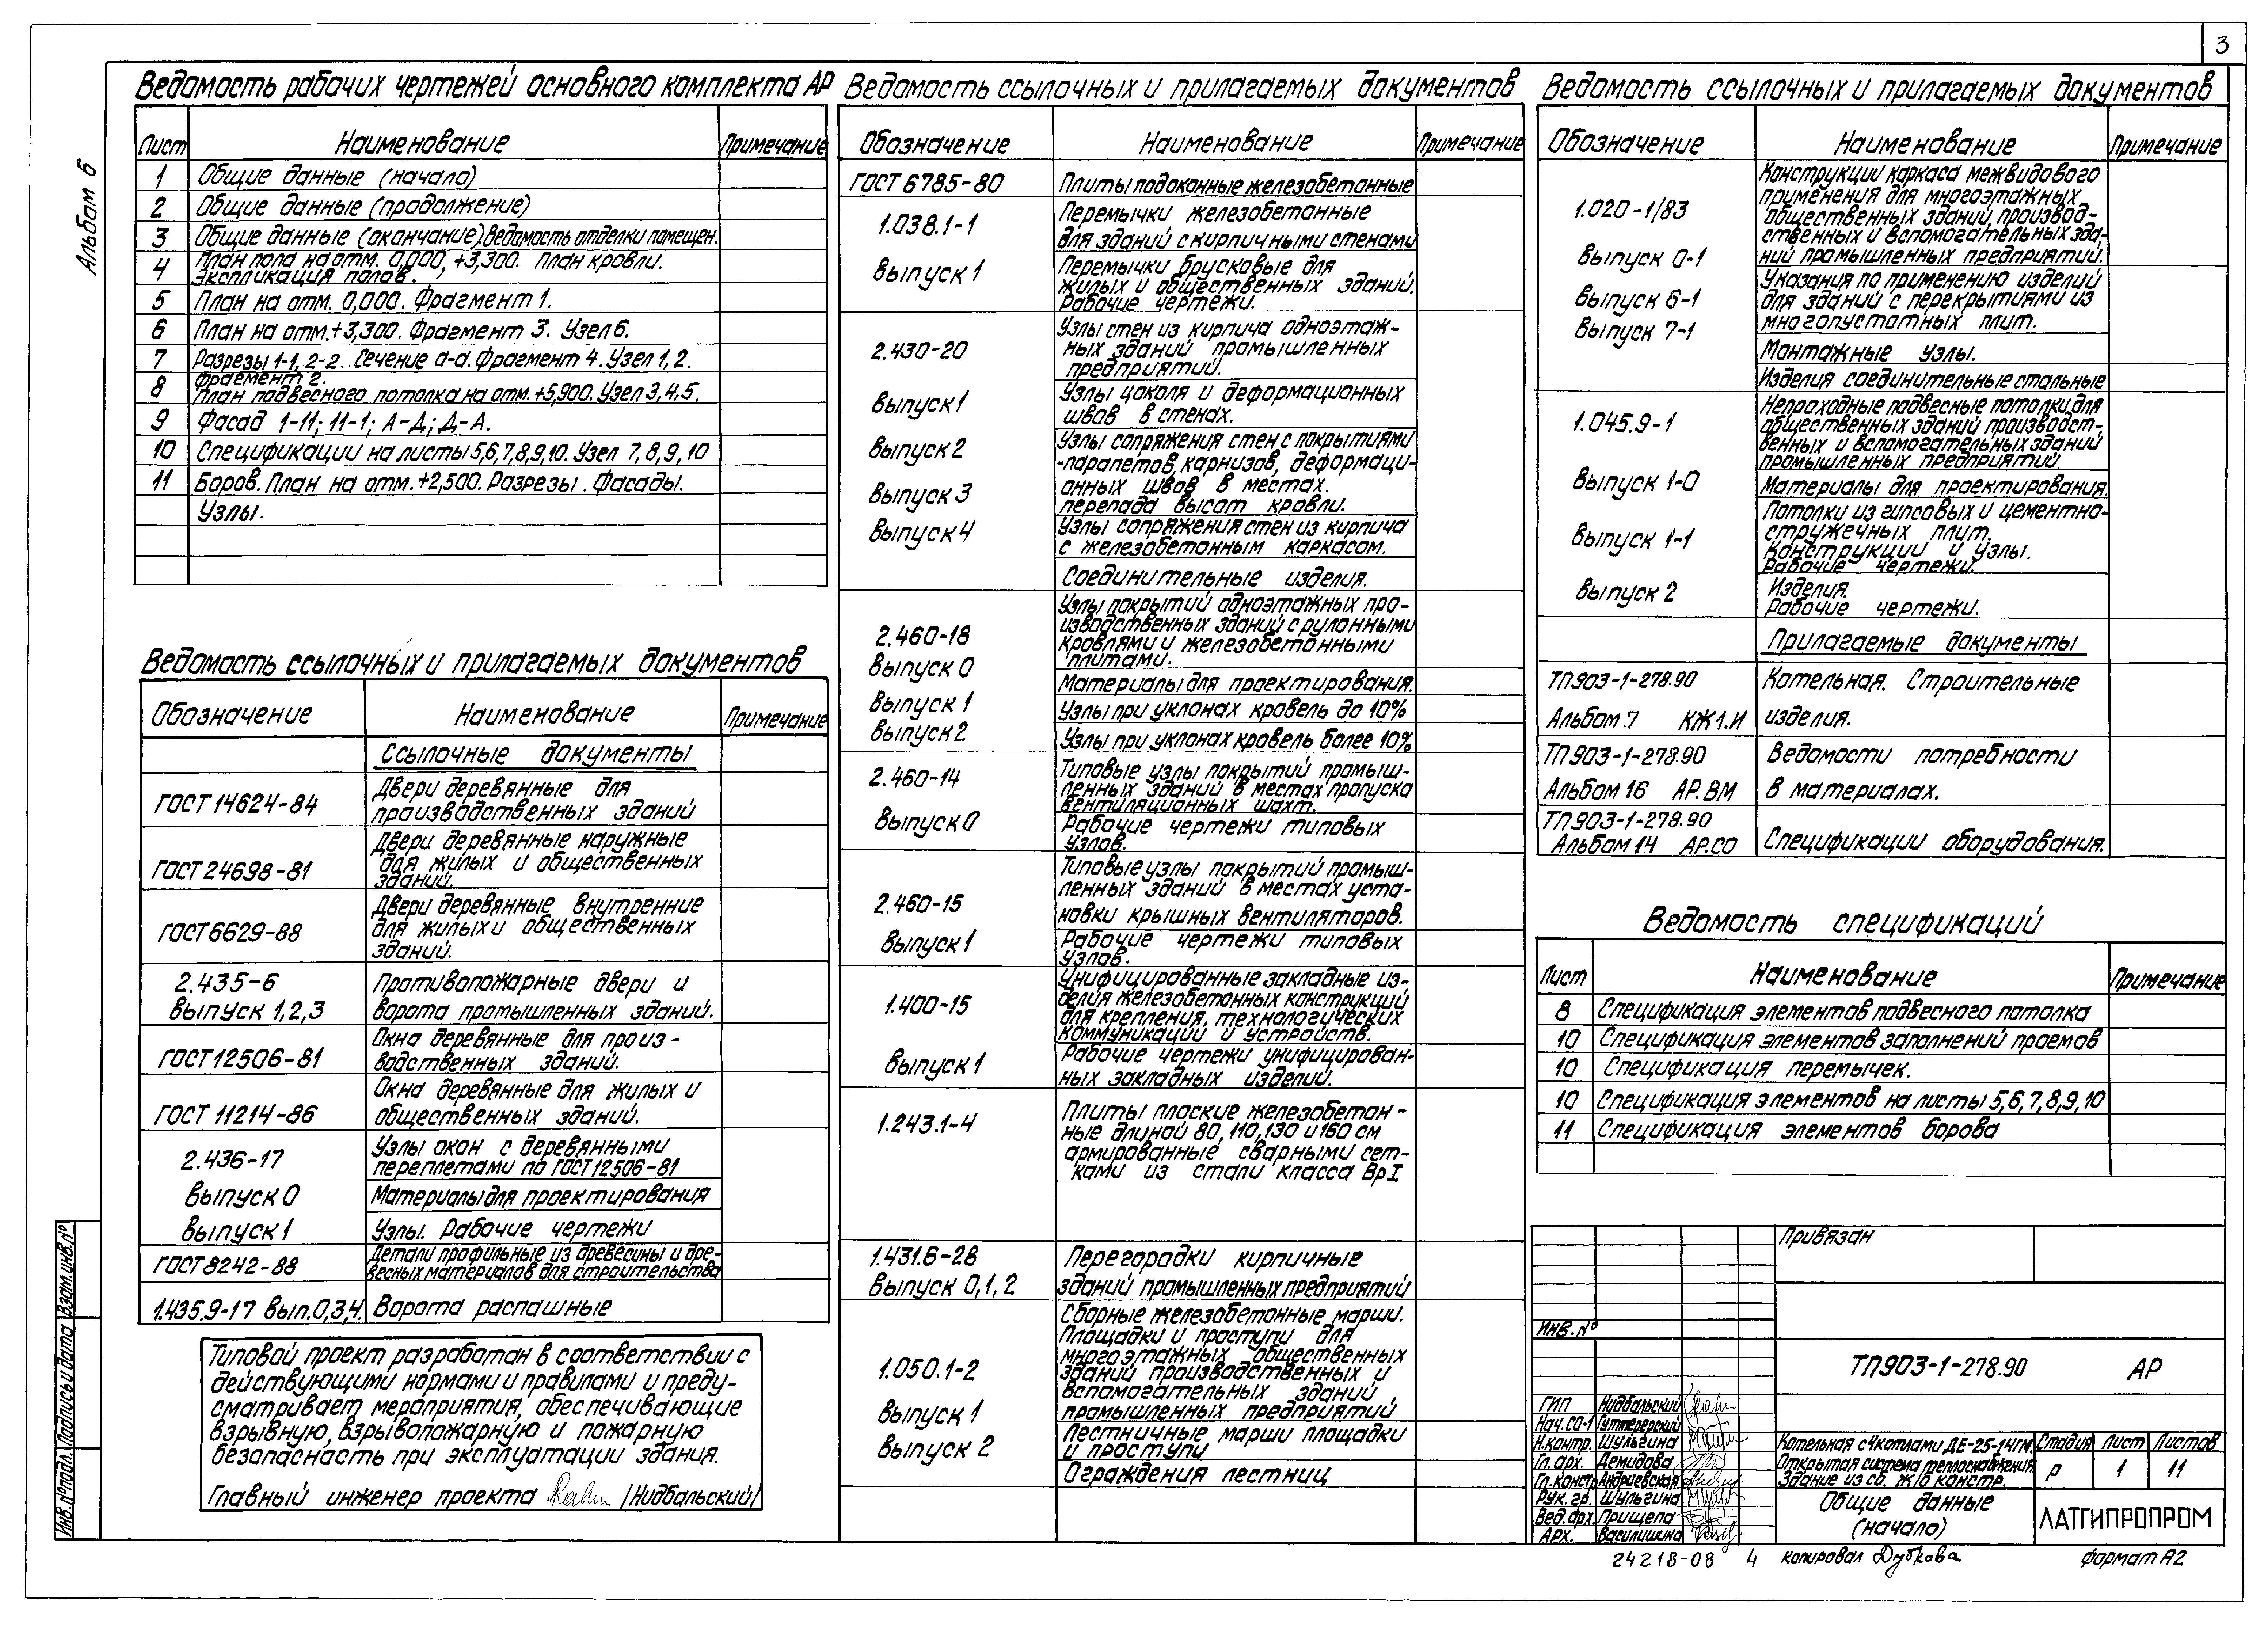 3
Альбом 6
Ведомость рабочих чертежей основного комплекта АР
Лист Наименование Примечание
1 Общие данные (начало)
2 Общие данные (продолжение)
3 Общие данные (окончание). Ведомость отделки помещен.
4 План пола на отм. 0,000, +3,300. План кровли.
Экспликация полов.
5 План на отм. 0,000. Фрагмент 1.
6 План на отм. +3,300. Фрагмент 3. Узел 6.
7 Разрезы 1-1, 2-2. Сечение а-а. Фрагмент 4. Узел 1, 2.
8 Фрагмент 2.
План подвесного потолка на отм. +5,900. Узел 3, 4, 5.
9 Фасад 1-11; 11-1; А-Д; Д-А.
10 Спецификации на листы 5,6,7,8,9,10. Узел 7, 8, 9, 10
11 Боров. План на отм. +2,500. Разрезы. Фасады.
Узлы.
Ведомость ссылочных и прилагаемых документов
Обозначение Наименование Примечание
Ссылочные документы
ГОСТ 14624-84 Двери деревянные для
производственных зданий
ГОСТ 24698-81 Двери деревянные наружные
для жилых и общественных
зданий.
ГОСТ 6629-88 Двери деревянные внутренние
для жилых и общественных
зданий.
2.435-6 Противопожарные двери и
выпуск 1,2,3 ворота промышленных зданий.
ГОСТ 12506-81 Окна деревянные для произ-
водственных зданий.
ГОСТ 11214-86 Окна деревянные для жилых и
общественных зданий.
2.436-17 Узлы окон с деревянными
переплетами по ГОСТ 12506-81
Выпуск 0 Материалы для проектирования
выпуск 1 Узлы. Рабочие чертежи
ГОСТ 8242-88 Детали профильные из древесины и дре-
весных материалов для строительства
1.435.9-17 вып.0,3,4. Ворота распашные
Типовой проект разработан в соответствии с
действующими нормами и правилами и преду-
сматривает мероприятия, обеспечивающие
взрывную, взрывопожарную и пожарную
безопасность при эксплуатации здания.
Главный инженер проекта /Нидбальский/
Ведомость ссылочных и прилагаемых документов
Обозначение Наименование Примечание
ГОСТ 6785-80 Плиты подоконные железобетонные
1.038.1-1 Перемычки железобетонные
для зданий с кирпичными стенами
выпуск 1 Перемычки брусковые для
жилых и общественных зданий.
Рабочие чертежи.
2.430-20 Узлы стен из кирпича одноэтаж-
ных зданий промышленных
предприятий.
выпуск 1 Узлы цоколя и деформационных
швов в стенах.
выпуск 2 Узлы сопряжения стен с покрытиями
-парапетов, карнизов, деформаци-
выпуск 3 онных швов в местах.
перепада высот кровли.
выпуск 4 Узлы сопряжения стен из кирпича
с железобетонным каркасом.
Соединительные изделия.
2.460-18 Узлы покрытий одноэтажных про-
изводственных зданий с рулонными
кровлями и железобетонными
плитами.
выпуск 0 Материалы для проектирования.
выпуск 1 Узлы при уклонах кровель до 10%
выпуск 2 Узлы при уклонах кровель более 10%
2.460-14 Типовые узлы покрытий промыш-
ленных зданий в местах пропуска
вентиляционных шахт.
выпуск 0 Рабочие чертежи типовых
узлов.
2.460-15 Типовые узлы покрытий промыш-
ленных зданий в местах уста-
новки крышных вентиляторов.
выпуск 1 Рабочие чертежи типовых
узлов.
1.400-15 Унифицированные закладные из-
делия железобетонных конструкций
для крепления, технологических
коммуникаций и устройств.
выпуск 1 Рабочие чертежи унифицирован-
ных закладных изделий.
1.243.1-4 Плиты плоские железобетон-
ные длиной 80, 110, 130 и 160 см
армированные сварными сет-
ками из стали класса Вр I
1.431.6-28 Перегородки кирпичные
выпуск 0, 1, 2 зданий промышленных предприятий
1.050.1-2 Сборные железобетонные марши.
Площадки и проступи для
многоэтажных общественных
зданий производственных и
вспомогательных зданий
промышленных предприятий
выпуск 1 Лестничные марши площадки
и проступи
выпуск 2 Ограждения лестниц
Ведомость ссылочных и прилагаемых документов
Обозначение Наименование Примечание
1.020-1/83 Конструкции каркаса межвидового
применения для многоэтажных
общественных зданий, производ-
ственных и вспомогательных зда-
ний промышленных предприятий.
выпуск 0-1 Указания по применению изделий
для зданий с перекрытиями из
многопустотных плит.
выпуск 6-1 Монтажные узлы.
выпуск 7-1 Изделия соединительные стальные
1.045.9-1 Непроходные подвесные потолки для
общественных зданий производст-
венных и вспомогательных зданий
промышленных предприятий.
выпуск 1-0 Материалы для проектирования.
выпуск 1-1 Потолки из гипсовых и цементно-
стружечных плит.
Конструкции и узлы.
Рабочие чертежи.
выпуск 2 Изделия.
Рабочие чертежи.
Прилагаемые документы
ТП 903-1-278.90 Котельная. Строительные
Альбом 7 КЖ1.И изделия.
ТП 903-1-278.90 Ведомости потребности
Альбом 16 АР.ВМ в материалах.
ТП 903-1-278.90
Альбом 14 АР.СО Спецификации оборудования.
Ведомость спецификаций
Лист Наименование Примечание
8 Спецификация элементов подвесного потолка
10 Спецификация элементов заполнений проемов
10 Спецификация перемычек.
10 Спецификация элементов на листы 5,6,7,8,9,10
11 Спецификация элементов борова
Привязан
Инв. №
ТП 903-1-278.90 АР
ГИП Нидбальский
Нач. СО-1 Гуттерерский
Н.контр. Шульгина
Гл. арх. Демидова
Гл. констр. Андриевская
Рук. гр. Шульгина
Вед. арх. Прищепа
Арх. Василишина
Котельная с 4 котлами ДЕ-25-14ГМ.
Открытая система теплоснабжения
Здание из сб. ж/б констр.
Стадия Лист Листов
р 1 11
Общие данные
(начало)
ЛАТГИПРОПРОМ
24218-08 4 копировал Дубкова формат А2
Инв. № подл. Подпись и дата Взам. инв. №